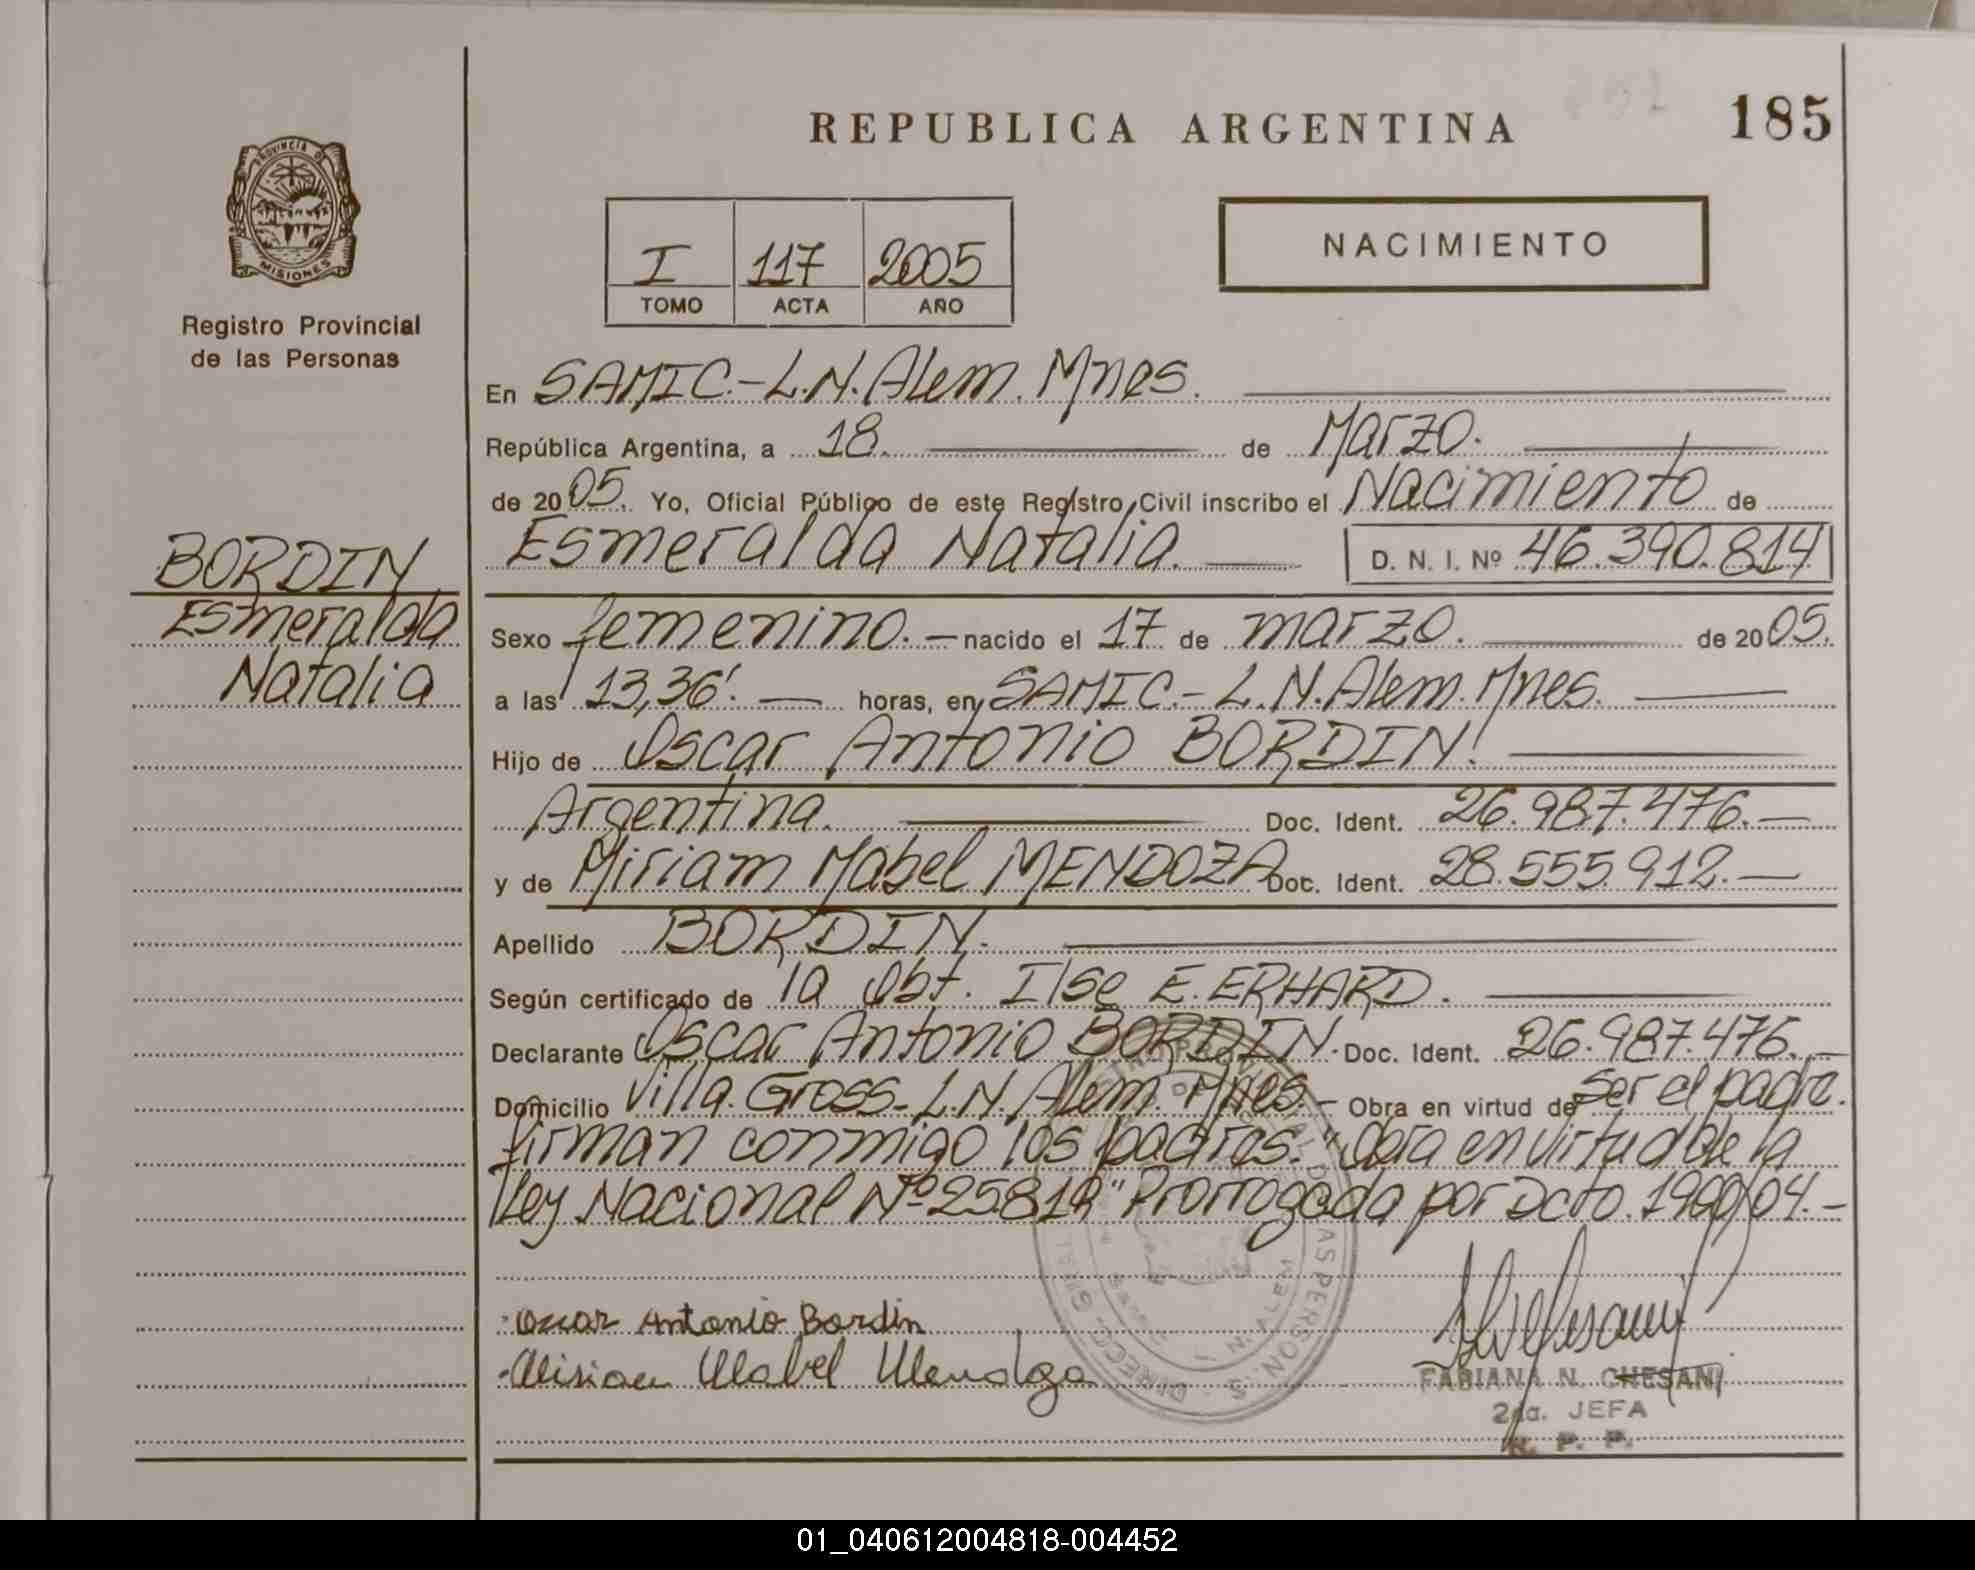 185
REPUBLICA ARGENTINA
PROVINCIA DE
MISIONES
Registro Provincial
de las Personas
I 117 2005
TOMO ACTA AÑO
NACIMIENTO
En SAMIC.-L.N.Alem. Mnes.
República Argentina, a 18. de Marzo.
de 2005. Yo, Oficial Público de este Registro Civil inscribo el Nacimiento de
Esmeralda Natalia. D. N. I. Nº 46.390.814
BORDIN
Esmeralda
Natalia
Sexo femenino.- nacido el 17 de marzo. de 2005.
a las 13,36'. horas, en SAMIC.-L.N.Alem. Mnes.
Hijo de Oscar Antonio BORDIN!
Argentina. Doc. Ident. 26.987.476.-
y de Miriam Mabel MENDOZA Doc. Ident. 28.555.912.-
Apellido BORDIN.
Según certificado de la Obt. Ilse E. ERHARD.
Declarante Oscar Antonio BORDIN. Doc. Ident. 26.987.476.-
Domicilio Villa Gross- L.N. Alem. Mnes.- Obra en virtud de ser el padre.
firman conmigo los padres. "Obra en virtud de la
Ley Nacional Nº 25819" Prorrogada por Dcto. 1900/04.-
Oscar Antonio Bordin
Miriam Mabel Mendoza
FABIANA N. CHESANI
2da. JEFA
R. P. P.
01_040612004818-004452